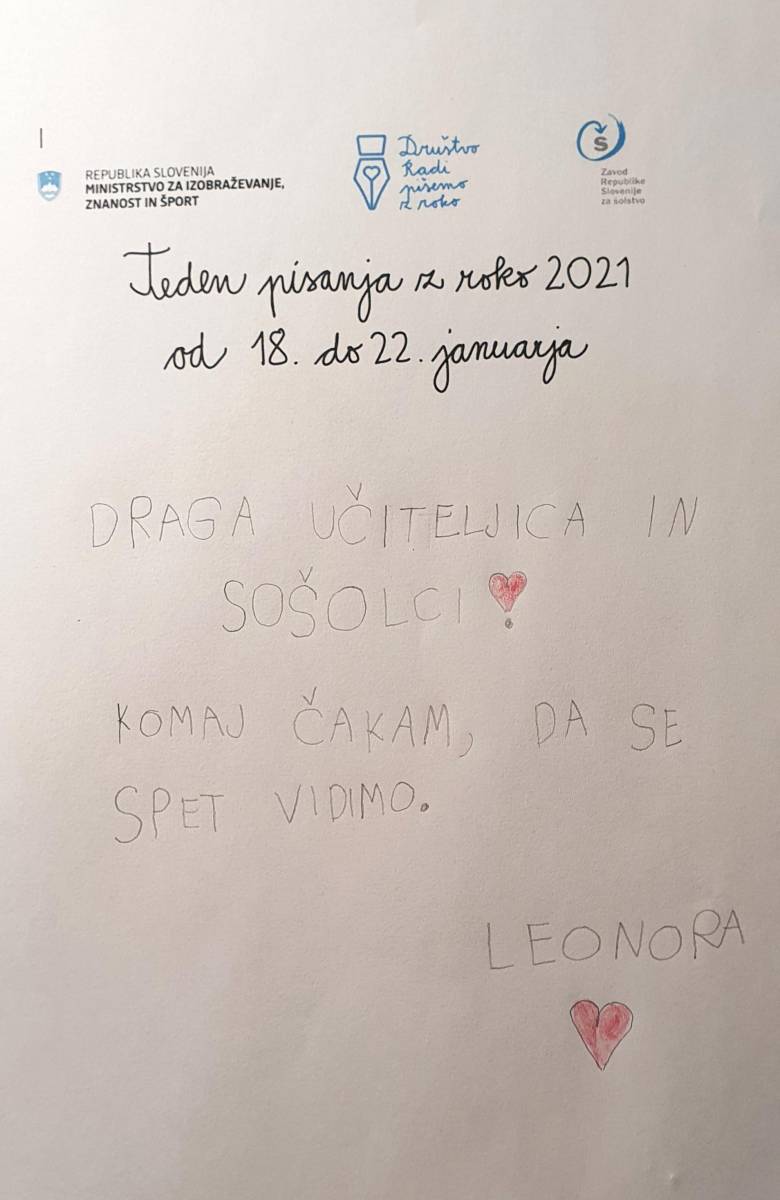 REPUBLIKA SLOVENIJA
MINISTRSTVO ZA IZOBRAŽEVANJE,
ZNANOST IN ŠPORT
Društvo
Radi
pišemo
z roko
Š
Zavod
Republike
Slovenije
za šolstvo
Teden pisanja z roko 2021
od 18. do 22. januarja
DRAGA UČITELJICA IN
SOŠOLCI
KOMAJ ČAKAM, DA SE
SPET VIDIMO.
LEONORA